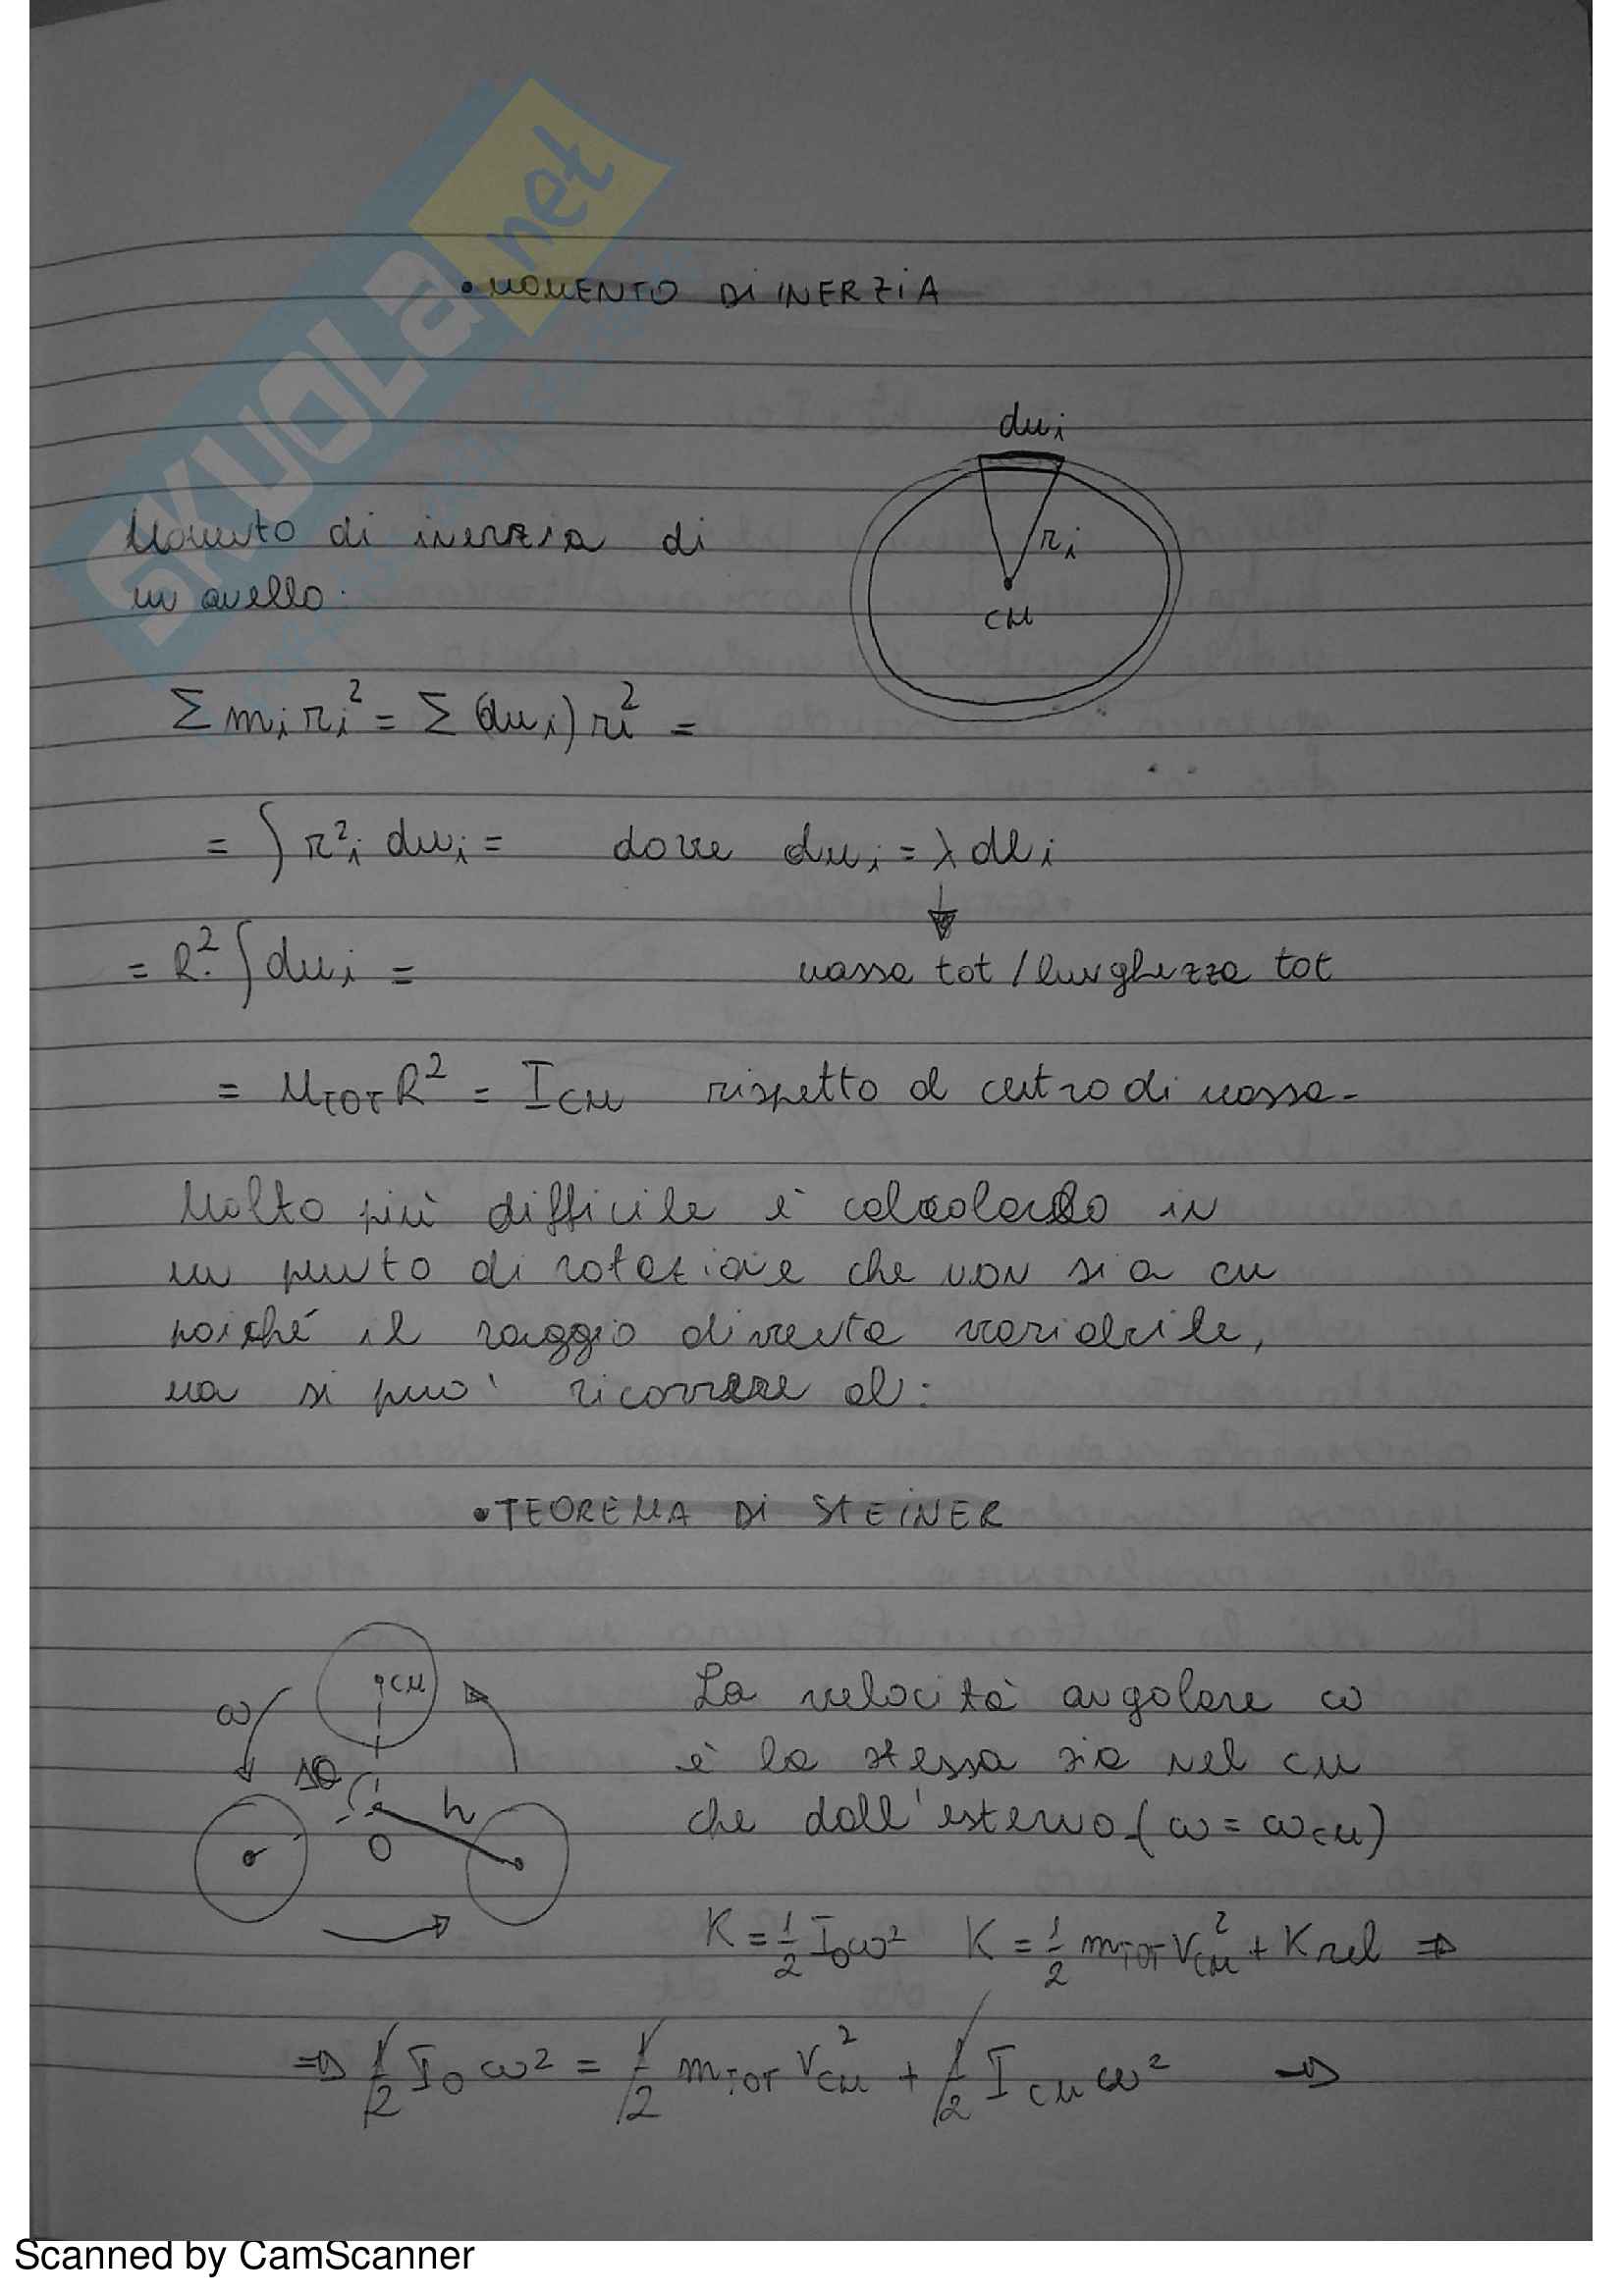 SKUOLA.net
• MOMENTO DI INERZIA
dmi
Momento di inerzia di
un anello.
ri
CM
Σ mi ri² = Σ (dmi) ri² =
= ∫ r²i dmi = dove dmi = λ dli
= R² ∫ dmi = massa tot / lunghezza tot
= MTOT R² = ICM rispetto al centro di massa.
Molto più difficile è calcolarlo in
un punto di rotazione che non sia cm
poiché il raggio diventa variabile,
ma si puo' ricorrere al:
• TEOREMA DI STEINER
CM
ω
Δθ
h
O
La velocità angolare ω
è la stessa sia nel cm
che dall'esterno. (ω = ωCM)
K = 1/2 I0 ω² K = 1/2 mTOT VCM² + K rel ⇒
⇒ 1/2 I0 ω² = 1/2 mTOT VCM² + 1/2 ICM ω² ⇒
Scanned by CamScanner